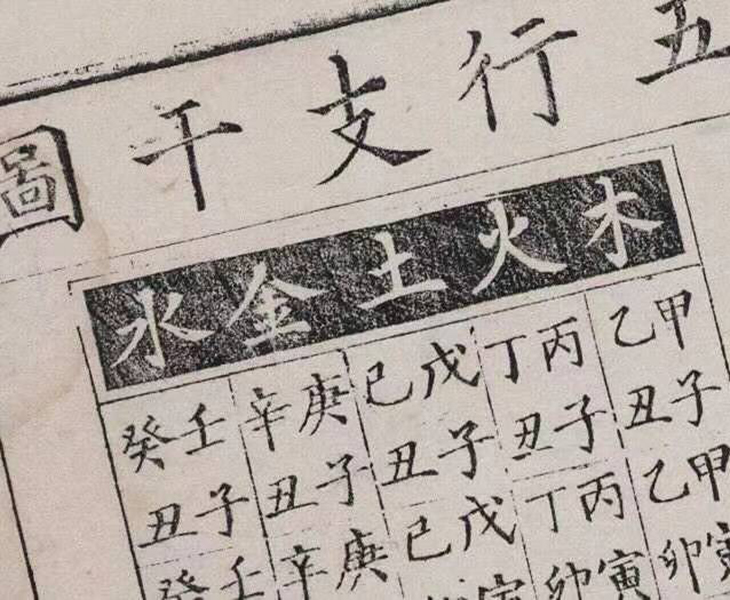 五行支干圖
木火土金水
甲乙 丙丁 戊己 庚辛 壬癸
子丑 子丑 子丑 子丑 子丑
甲乙 丙丁 戊己 庚辛 壬癸
寅卯 寅卯 寅